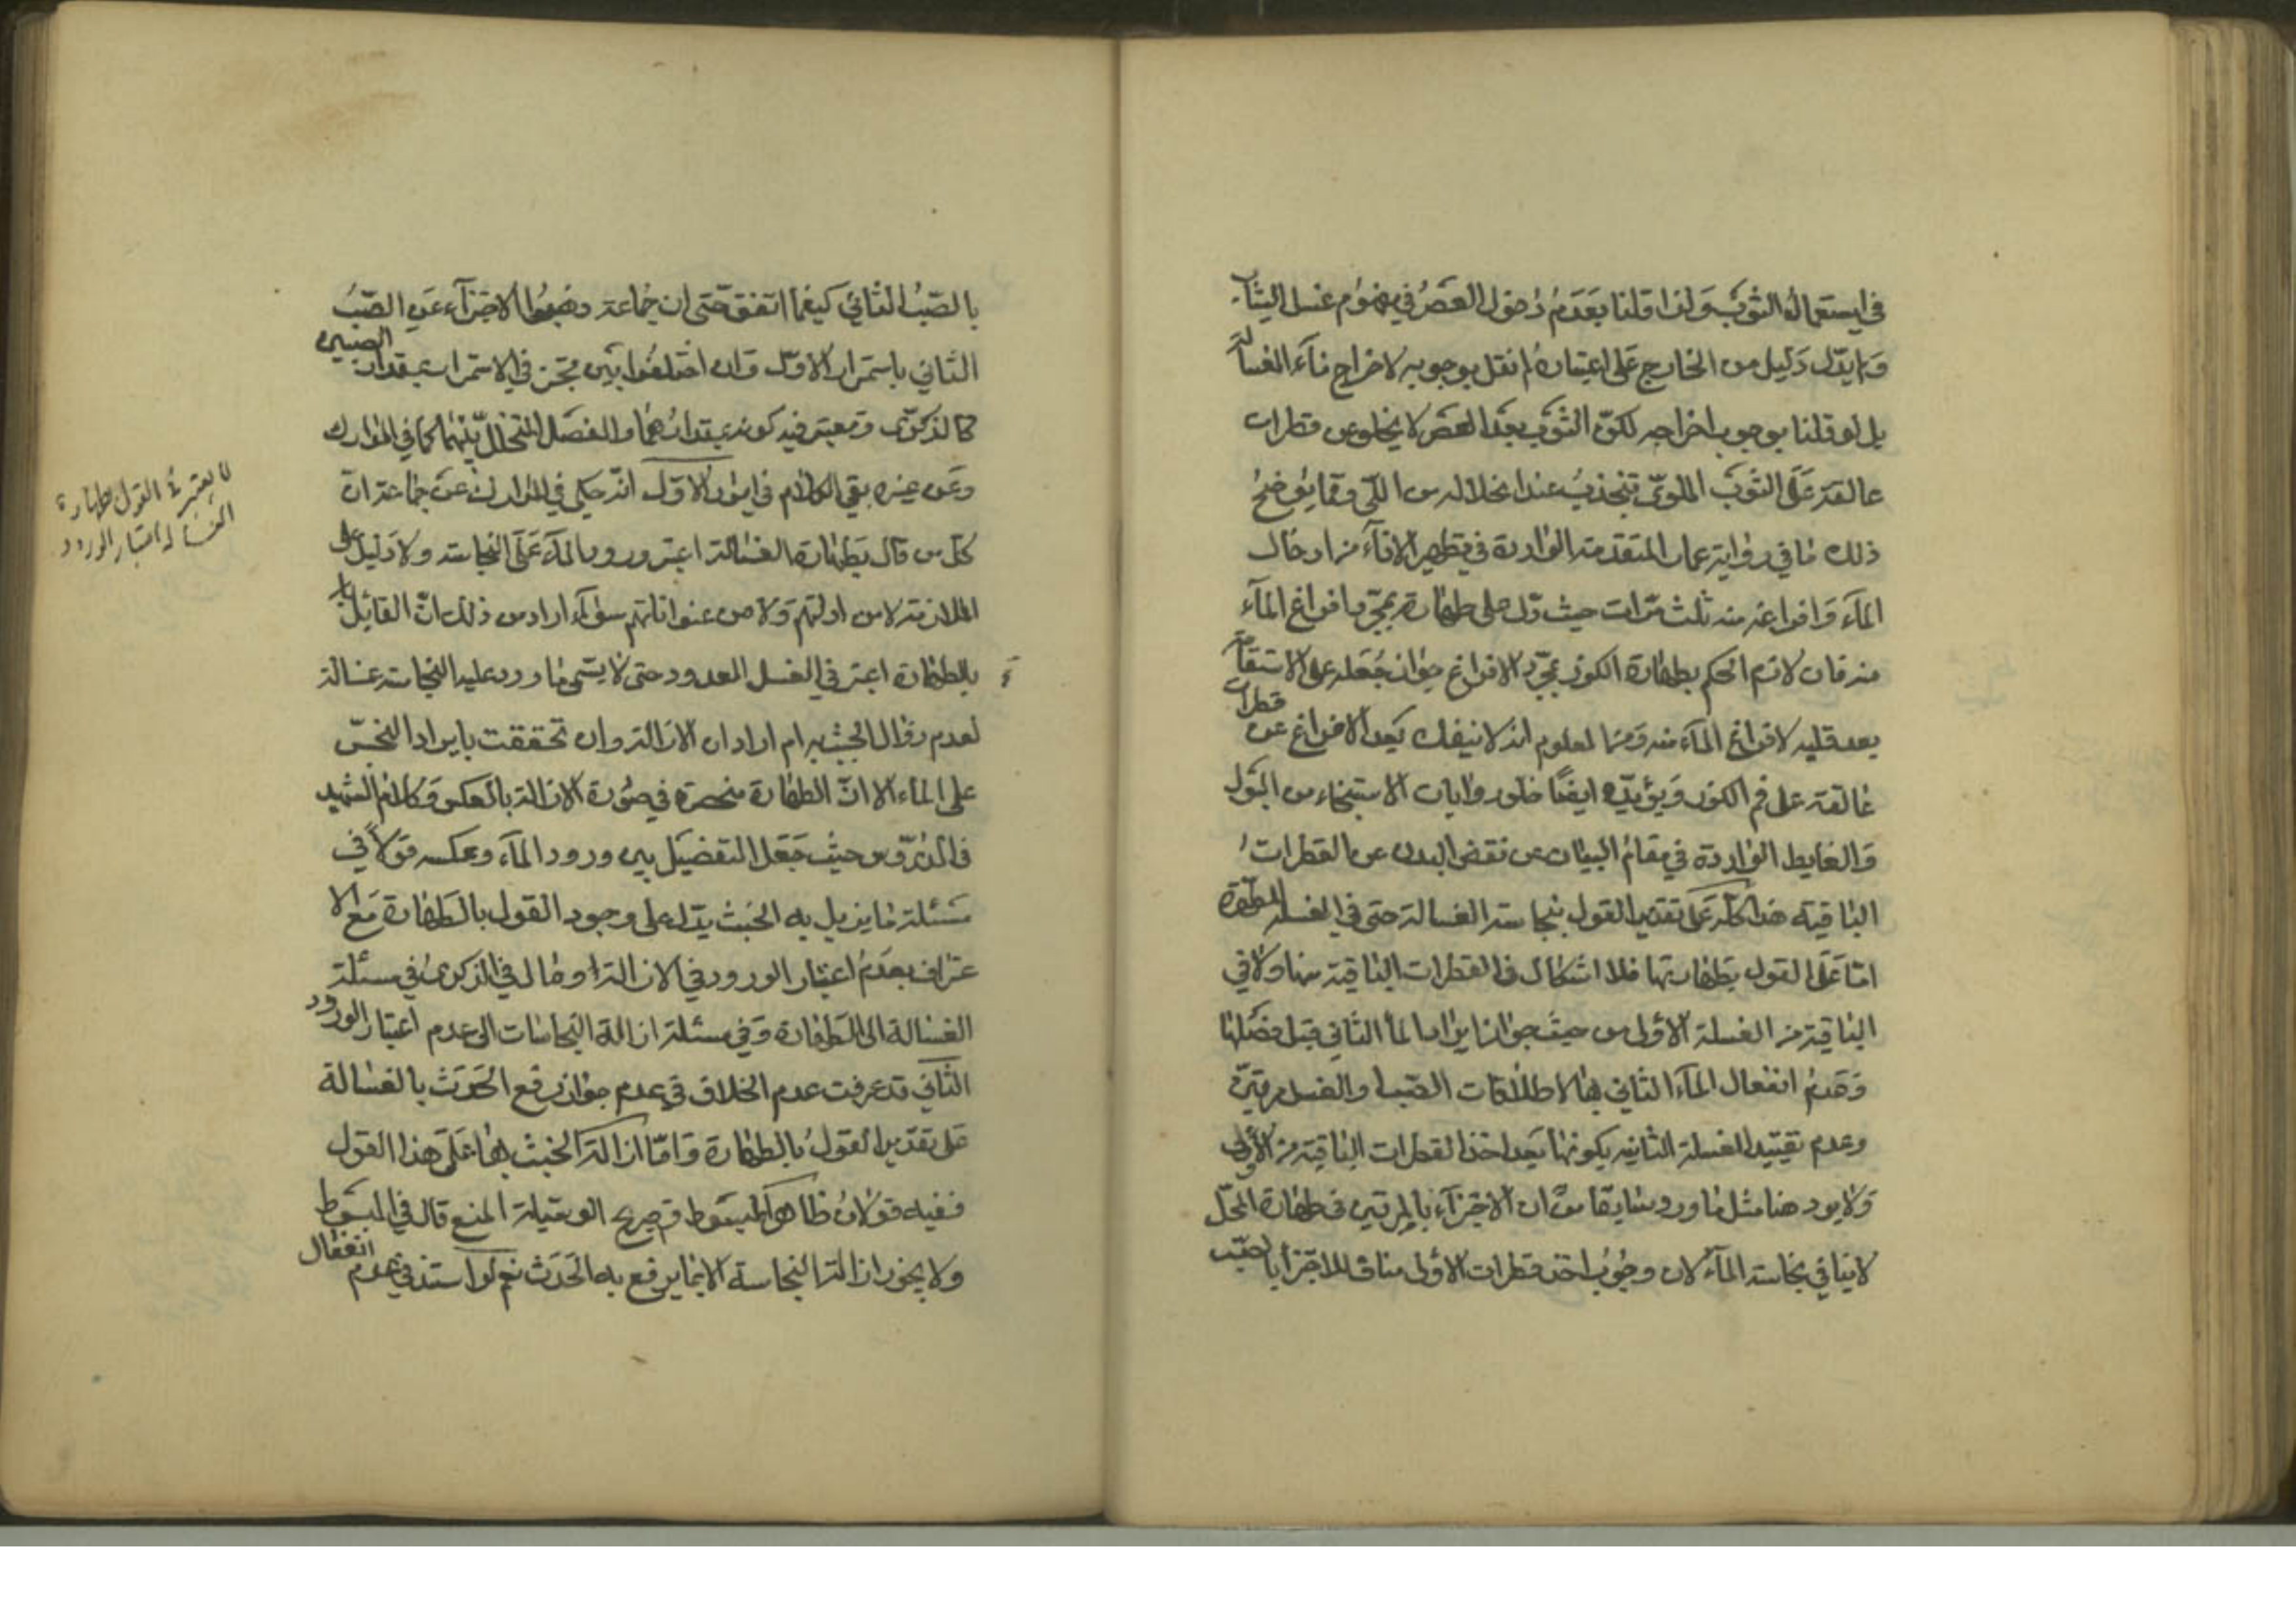 في استعماله الثوب ولذا قلنا بعدم دخول العصر في مفهوم غسل الثياب
وما يدل دليل من الخارج على اعتباره لم نقل بوجوبه لاخراج ماء الغسالة
بل لو قلنا بوجوب اخراجه لكن الثوب بعد العصر لا يخلو عن قطرات
عالقة على الثوب الملوي تنجذب عند انخلاله من اللي ومما يوضح
ذلك ما في رواية عمار المتقدمة الواردة في تطهير الاناء من ادخال
الماء وافراغه منه ثلث مرات حيث دل على طهارة بمجرد افراغ الماء
منه فان لازم الحكم بطهارة الكوز بمجرد الافراغ جواز جعله على الاستقامة
بعد قلبه لافراغ الماء منه ومن المعلوم انه لا ينفك بعد الافراغ عن قطرات
عالقة على فم الكوز ويؤيده ايضا خلو روايات الاستنجاء من البول
والغايط الواردة في مقام البيان عن نفض البدن عن القطرات
الباقية هذا كله على تقدير القول بنجاسة الغسالة حتى في الغسلة المطهرة
اما على القول بطهارتها فلا اشكال في القطرات الباقية منها ولا في
الباقية من الغسلة الأولى من حيث جواز ايراد الماء الثاني قبل فصلها
وعدم انفعال الماء الثاني بها لاطلاقات الصب والغسل مرتين
وعدم تقييد الغسلة الثانية بكونها بعد اخذ القطرات الباقية من الأولى
ولا يرد هنا مثل ما ورد سابقا من ان الاجتزاء بالمرتين في طهارة المحل
لا ينافي نجاسة الماء لان وجوب اخذ قطرات الأولى مناف للاجتزا بالصب
بالصب الثاني كيفما اتفق حتى ان جماعة ذهبوا الاجتزاء عن الصب
الثاني باستمرار الاول وان اختلفوا بين مجتز في الاستمرار بمقدار الصبين
كالذكرى ومعتبر فيه كونه بمقدارهما والفصل المتخلل بينهما كما في المدارك
وعن غيره بقي الكلام في امور الاول انه حكي في المدارك عن جماعة ان
كل من قال بطهارة الغسالة اعتبر ورود الماء على النجاسة ولا دليل على
الملازمة لا من ادلتهم ولا من عنواناتهم سواء اراد من ذلك ان القائل
بالطهارة اعتبر في الغسل المعدود حتى لا يسمى ما ورد عليه النجاسة غسالة
لعدم زوال الخبث به ام اراد ان الازالة وان تحققت بايراد النجس
على الماء الا ان الطهارة منحصرة في صورة الازالة بالعكس وكلام الشهيد
في الدروس حيث جعل التفصيل بين ورود الماء وعكسه قولا في
مسئلة ما يزيل به الخبث يدل على وجود القول بالطهارة مع الا
عتراف بعدم اعتبار الورود في الازالة ومال في الذكرى في مسئلة
الغسالة الى الطهارة وفي مسئلة ازالة النجاسات الى عدم اعتبار الورود
الثاني قد عرفت عدم الخلاف في عدم جواز رفع الحدث بالغسالة
على تقدير القول بالطهارة واما ازالة الخبث بها على هذا القول
ففيه قولان ظاهر المبسوط وصريح الوسيلة المنع قال في المبسوط
ولا يجوز ازالة النجاسة الا بما يرفع به الحدث نعم لو استند في عدم انفعال
لا يعتبر في القول بطهارة
الغسالة اعتبار الورود